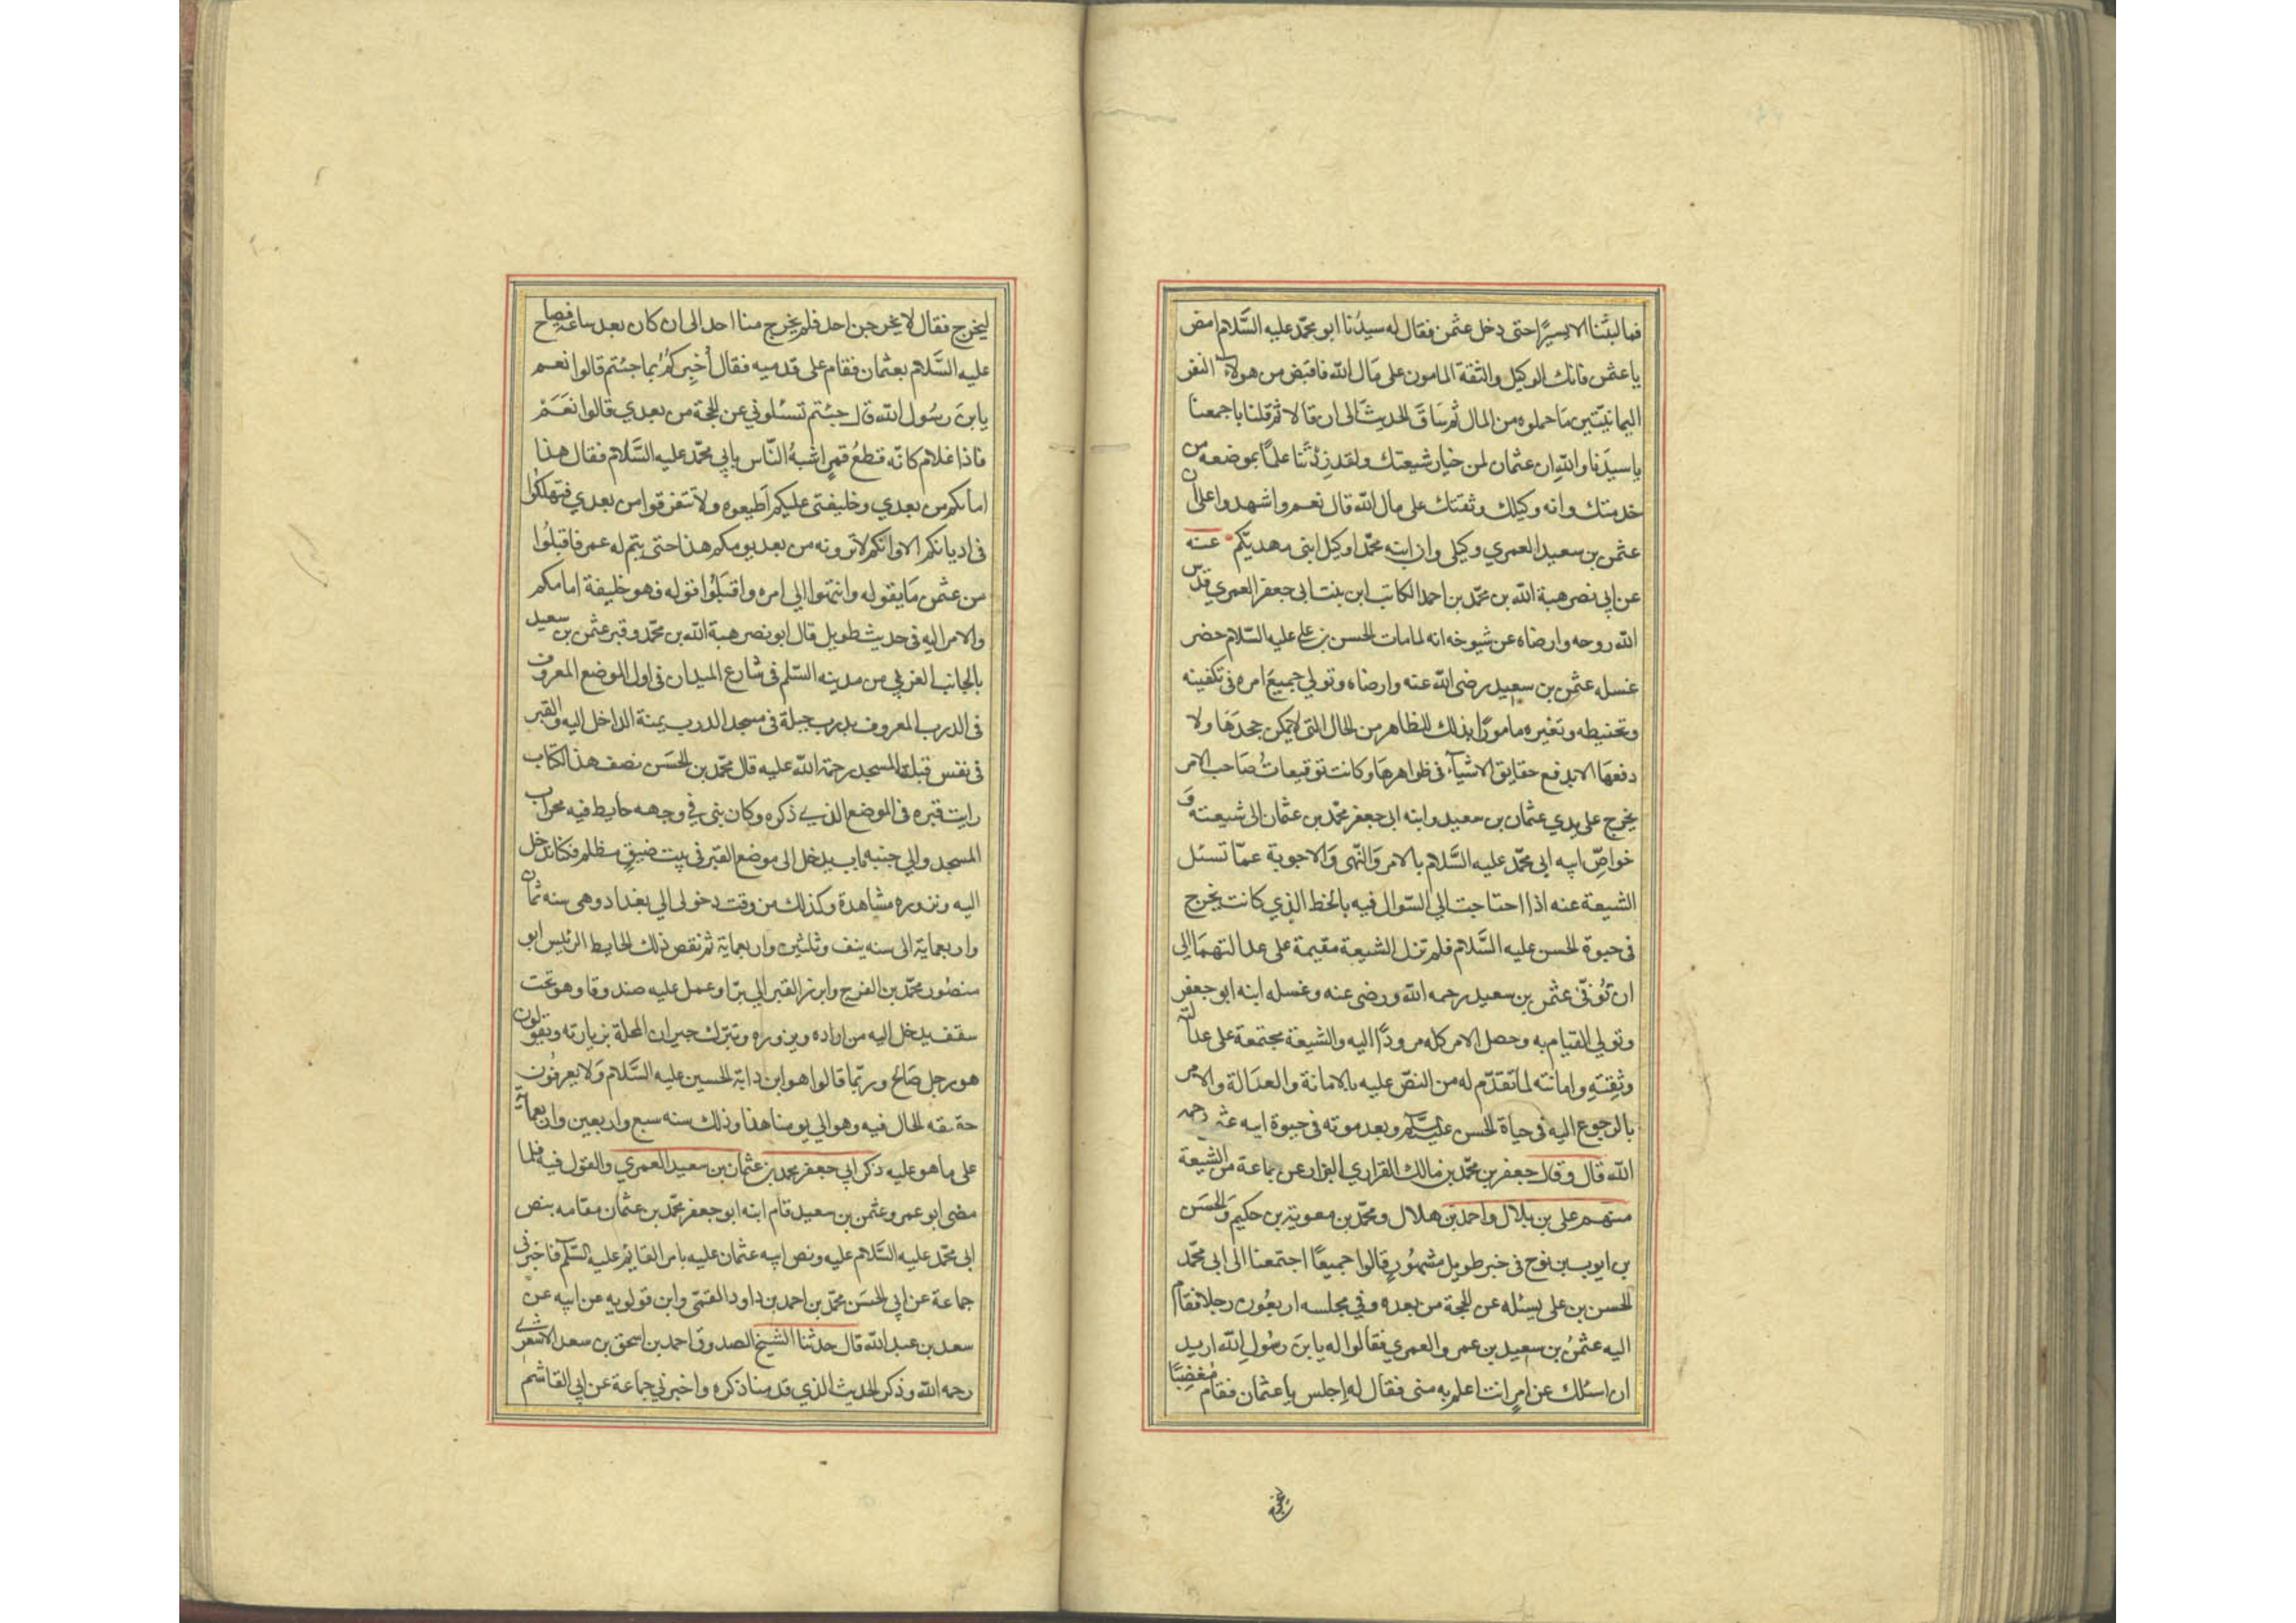 فما لبثنا الا يسيرًا حتى دخل عثمن فقال له سيدُنا ابو محمّد عليه السَّلام امض
يا عثمن فانك الوكيل والثقة المامون على مَال اللّه فاقبض من هولاء النفر
اليمانيّين مَا حملوه من المال ثم سَاقَ الحديثَ الى ان قالا ثم قلنا باجمعنا
يا سيدَنا واللّهِ ان عثمان لمن خيار شيعتك ولقد زدتَنا علمًا بموضعه من
خدمتك وانه وكيلك وثقتك على مال اللّه قال نعم واشهدوا على ان
عثمن بن سعيد العمري وكيلى وان ابنه محمّدا وكيل ابنى مهديّكم عنه
عن ابي نصر هبة اللّه بن محمّد بن احمد الكاتب ابن بنت ابى جعفر العمري قدّس
اللّه روحه وارضاه عن شيوخه انه لما مات الحسن بن على عليه السّلام حضر
غسله عثمن بن سعيد رضى اللّه عنه وارضاه وتولي جميعَ امره فى تكفينه
وتحنيطه وتغيره مامورًا بذلك للظاهر من الحال التى لا يمكن جحدَهَا ولا
دفعهَا الا بدفع حقايق الاشيآء فى ظواهرهَا وكانت توقيعاتُ صَاحب الامر
يخرج على يدي عثمان بن سعيد وابنه ابى جعفر محمّد بن عثمان الى شيعته وَ
خواصّ ابيه ابى محمّد عليه السَّلام بالامر وَالنّهى وَالاجوبة عمّا تسئل
الشيعة عنه اذا احتاجت الي السّوال فيه بالخط الذي كانت يخرج
فى حيوة الحسن عليه السَّلام فلم تزل الشيعة مقيمة على عدالتهمَا الي
ان تُوفّى عثمن بن سعيد رحمه اللّه ورضى عنه وغسله ابنه ابو جعفر
وتولي القيام به وحصل الامر كله مردودًا اليه والشيعة مجتمعة على عدالته
وثِقتِهِ وامانته لما تقدّم له من النصّ عليه بالامانة والعدَالة والامر
بالرجوع اليه فى حياة الحسن عليه السّلم وبعد موته فى حيوة ابيه عثمن رحمه
اللّه قال وقال جعفر بن محمّد بن مالك الفزاري البزار عن جماعة من الشيعة
منهم على بن بلال واحمد بن هلال ومحمّد بن معوية بن حكيم وَالحسَن
بن ايوب بن نوح فى خبر طويل مشهُورٍ قالوا جميعًا اجتمعنا الى ابى محمّد
الحسن بن على يسئله عن الحجة من بعده وفي مجلسه اربعُون رجلا فقام
اليه عثمنُ بن سعيد بن عمرو العمري فقالوا له يا بن رسُول اللّه اريد
ان اسئلك عن امرٍ انت اعلم به منى فقال له اِجلس يا عثمان فقام مُغضِبًا
ليخرج فقال لا يخرجن احد فلم يخرج منا احد الى ان كان بعد ساعة فصاح
عليه السَّلام بعثمان فقام على قدميه فقال أُخبِركم بما جئتم قالوا نعم
يا بنَ رسُول اللّه قال جئتم تسئلوني عن الحجة من بعدي قالوا نَعَمْ
فاذا غلام كانّه قطعُ قمرٍ اشبهُ النّاس بابي محمّد عليه السَّلام فقال هذا
امامكم من بعدي وخليفتى عليكم اَطيعوه ولا تتفرقوا من بعدي فتهلكُوا
فى اديانكم الا وانكم لا ترونه من بعد يومكم هذا حتى يتم له عمر فاقبلُوا
من عثمن مَا يقوله وانتهوا الى امره واقبَلُوا قوله فهو خليفة امامكم
والامر اليه فى حديث طويل قال ابو نصر هبة اللّه بن محمّد وقبر عثمن بن سعيد
بالجانب الغربي من مدينه السّلم فى شارع الميدان فى اول الموضع المعروف
فى الدرب المعروف بدرب جبلة فى مسجد الدرب يمنة الداخل اليه والقبر
فى نفس قبلة المسجد رحمة اللّه عليه قال محمّد بن الحسَن نصف هذا الكتاب
رايت قبره فى الموضع الذي ذكره وكان بنى في وجهه حايط فيه محراب
المسجد والي جنبه باب يدخل الى موضع القبر فى بيت ضيقٍ مظلم فكنا ندخل
اليه ونزوره مشاهدة وكذلك من وقت دخولى الي بغداد وهى سنه ثمان
واربعماية الى سنه نيف وثلثين واربعماية ثم نقض ذلك الحايط الرئيس ابو
منصُور محمّد بن الفرج وابرز القبر الي برّا وعمل عليه صندوقا وهو تحت
سقف يدخل اليه من اراده ويزوره وتبرّك جيران المحلة بزيارته ويقولون
هو رجل صَالح وربّما قالوا هو ابن داية الحسين عليه السَّلام وَلا يعرفُون
حقيقه الحال فيه وهو الي يومنا هذا وذلك سنه سبع واربعين واربعماية
على ما هو عليه ذكر ابي جعفر محمد بن عثمان بن سعيد العمري والقول فيه فلما
مضى ابو عمرو عثمن بن سعيد قام ابنه ابو جعفر محمّد بن عثمان مقامه بنص
ابى محمّد عليه السَّلام عليه ونص ابيه عثمان عليه بامر القايم عليه السّلم فاخبرنى
جماعة عن ابي الحسَن محمّد بن احمد بن داود القمّى وابن قولويه عن ابيه عن
سعد بن عبد اللّه قال حدثنا الشيخ الصدوق احمد بن اسحق بن سعد الاشعري
رحمه اللّه وذكر الحديث الذي قدمنا ذكره واخبرني جماعة عن ابي القاسم